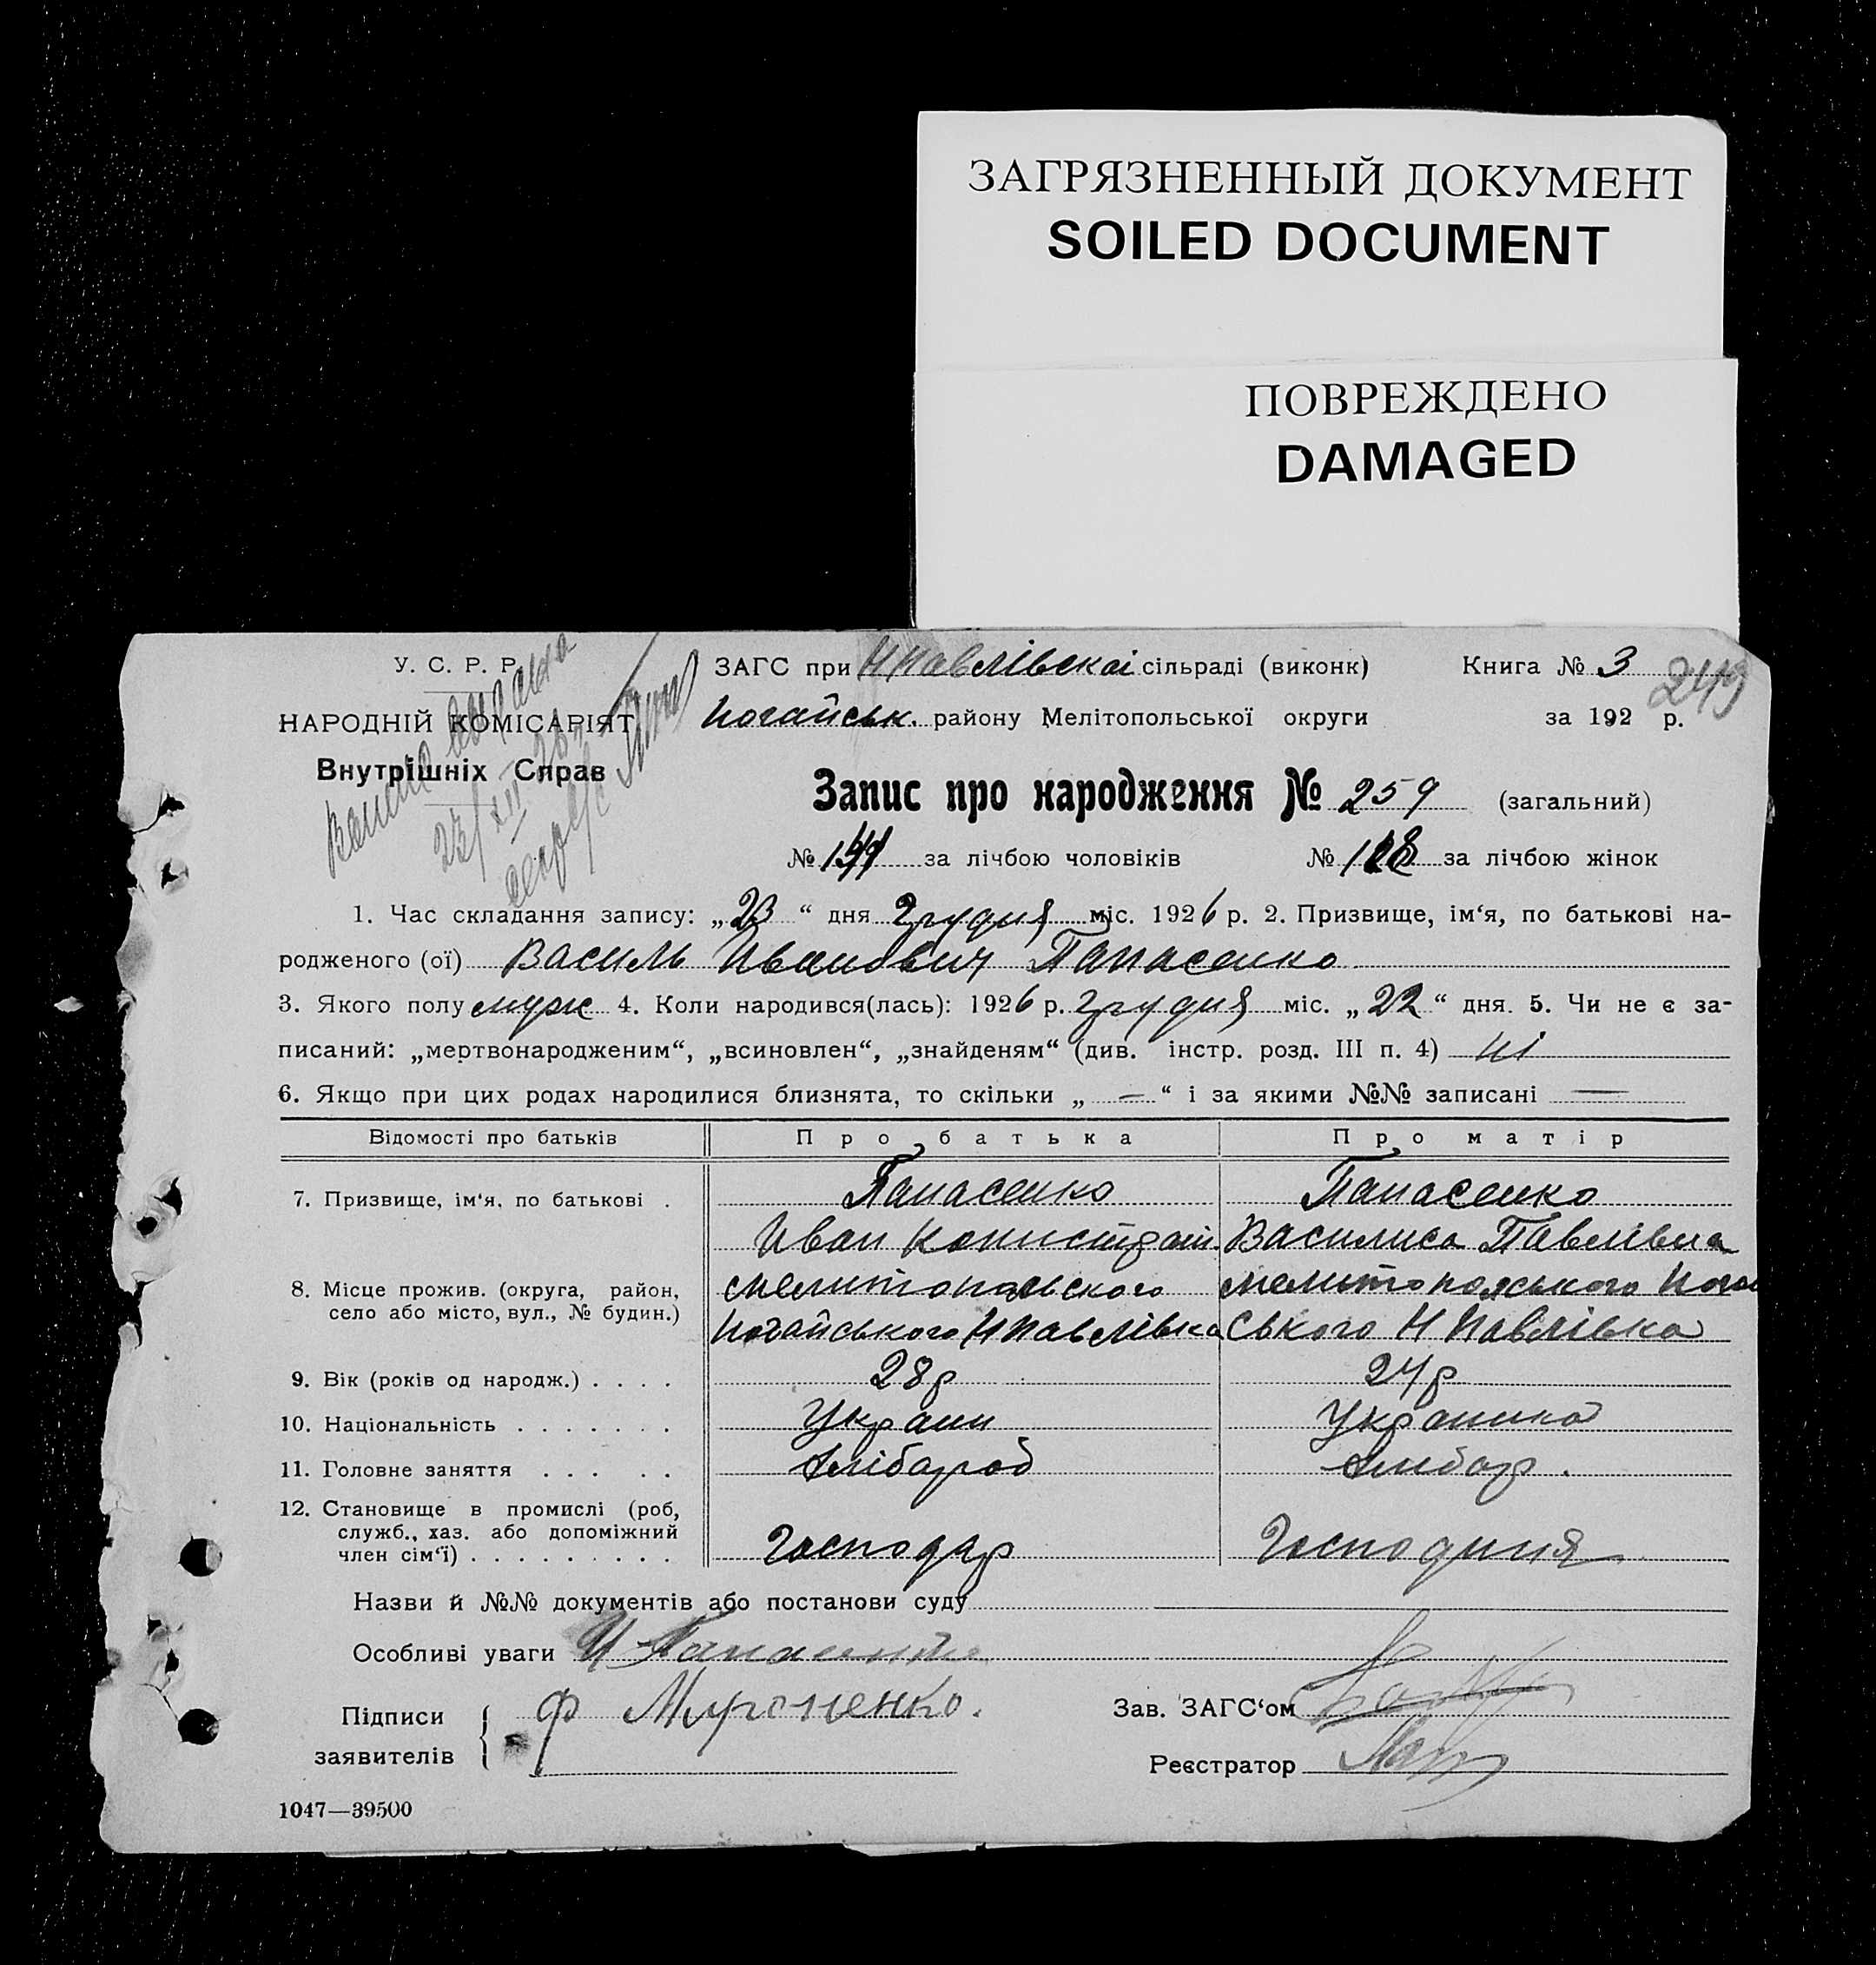 ЗАГРЯЗНЕННЫЙ ДОКУМЕНТ
SOILED DOCUMENT
ПОВРЕЖДЕНО
DAMAGED
У. С. Р. Р.
НАРОДНІЙ КОМІСАРІЯТ
Внутрішніх Справ
ЗАГС при НПавлівскоі сільраді (виконк)
Книга № 3
249
Ногайськ. району Мелітопольської округи
за 192 р.
Запис про народження № 259 (загальний)
№ за лічбою чоловіків
№ за лічбою жінок
1. Час складання запису: „23“ дня Грудня міс. 1926 р. 2. Призвище, ім‘я, по батькові на-
родженого (ої) Василь Иванович Папасенко
3. Якого полу муж 4. Коли народився(лась): 1926 р. Грудня міс. „22“ дня. 5. Чи не є за-
писаний: „мертвонародженим“, „всиновлен“, „знайденям“ (див. інстр. розд. III п. 4) ні
6. Якщо при цих родах народилися близнята, то скільки „ — “ і за якими №№ записані —
Відомості про батьків
Про батька
Про матір
7. Призвище, ім‘я, по батькові .
Папасенко
Папасенко
Иван
Василиса Павлівна
8. Місце прожив. (округа, район,
село або місто, вул., № будин.)
Мелитопольского
Мелитопольського Ногай
Ногайського НПавлівка
ського Н Павлівка
9. Вік (років од народж.) . . . .
28р
24р
10. Національність . . . . . . .
Украин
Украинка
11. Головне заняття . . . . .
Хлібороб
Хлибор.
12. Становище в промислі (роб,
служб., хаз. або допоміжний
член сім‘ї) . . . . . . . . .
Господар
Господиня
Назви й №№ документів або постанови суду
Особливі уваги
Підписи
заявителів
Ф Мироненко.
Зав. ЗАГС‘ом
Реєстратор
1047—39500